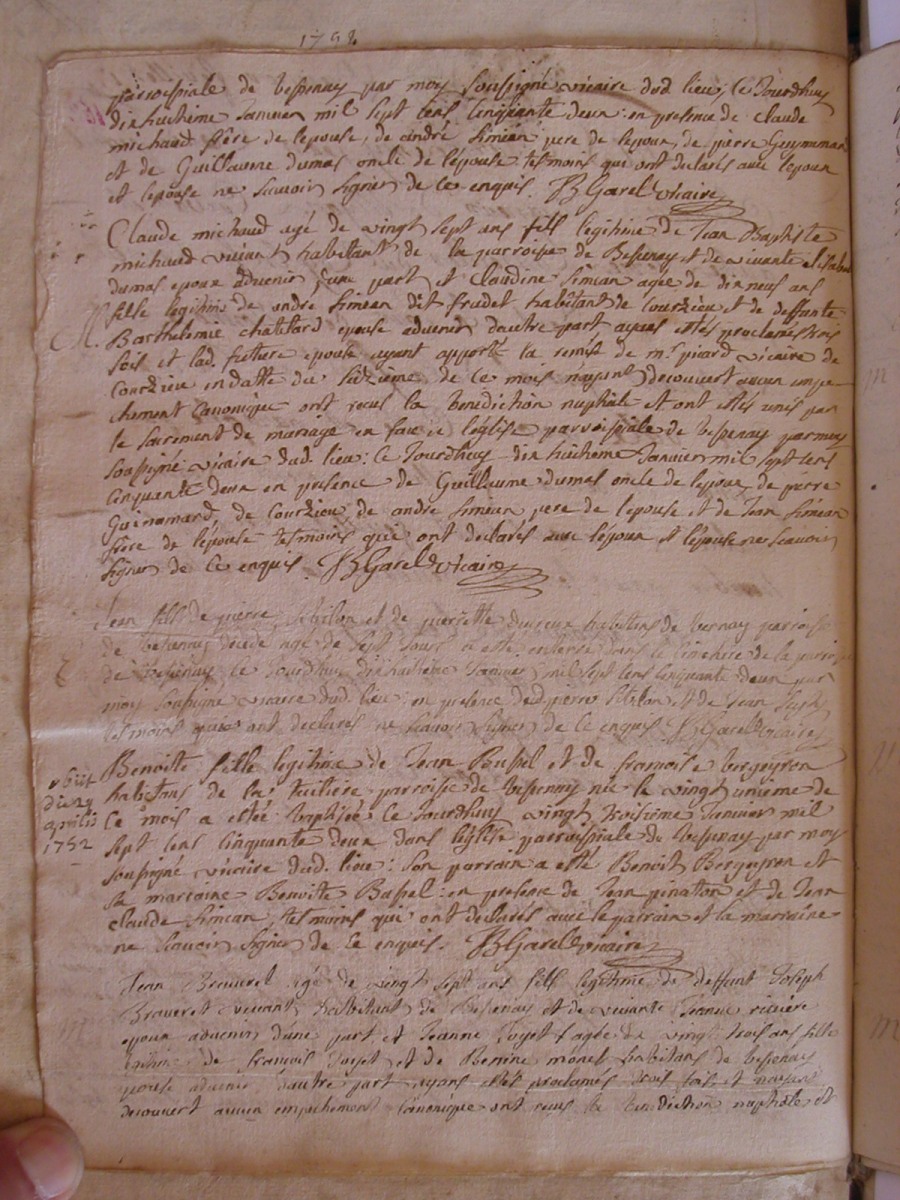 1752
parroissiale de bessenay par moy soussigné vicaire dud lieu, ce Jourdhuy
dix huitieme Janvier mil sept cens cinquante deux : en presence de claude
michaud frère de lepouse, de andré simean pere de lepoux, de pierre Guynamard
et de Guillaume dumas oncle de lepouse tesmoins qui ont declarés avec lepoux
et lepouse ne scavoir signer de ce enquis. JB Garel vicaire
Claude michaud agé de vingt sept ans fils legitime de Jean Baptiste
michaud vivant habittant de la parroisse de Bessenay et de vivante
dumas epoux advenir d'une part et Claudine simian agee de dix neuf ans
fille legitime de andre simean dit frudet habitant de Courzieu et de deffante
M. Barthelemie chatelard epouse advenir dautre part ayans estés proclamés trois
fois et lad. future epouse ayant apporté la remise de mr picard vicaire de
Courzieu en datte du seizieme de ce mois n'ayant decouvert aucun empe
chement canonique ont recus la benediction nuptiale et ont estés unis par
le sacrement de mariage en face de l'église parroissiale de bessenay par moy
soussigné vicaire dud. lieu : ce Jourdhuy dix huitieme Janvier mil sept cens
cinquante deux en presence de Guillaume dumas oncle de lepoux, de pierre
Guinamard de Courzieu de andre simean pere de lepouse et de Jean siméan
frère de lépouse tesmoins qui ont declarés avec lépoux et l'épouse ne scavoir
signer de ce enquis. JB Garel vicaire
Jean fils de pierre et de pierrette habitans de parroisse
de bessenay decede agé de sept jours a esté enterré dans le cimetiere de la parroisse
de bessenay ce Jourdhuy dix huitieme Janvier mil sept cens cinquante deux par
moy soussigné vicaire dud. lieu : en presence dud pierre et de Jean
tesmoins qui ont declarés ne scavoir signer de ce enquis JB Garel vicaire
obiit
die 29
aprilis
1752
Benoite fille legitime de Jean Bussel et de francoise bergeyron
habitans de la parroisse de bessenay née le vingt unieme de
ce mois a estée baptisée ce Jourdhuy vingt troisieme Janvier mil
sept cens cinquante deux dans l'église parroissiale de bessenay par moy
soussigné vicaire dud. lieu : son parrain a esté Benoit Bergeyron et
sa marraine Benoite Bussel : en presence de Jean pinatton et de Jean
claude simian, tesmoins qui ont declarés avec le parrain et la marraine
ne scavoir signer de ce enquis. JB Garel vicaire
Jean Braveret agé de vingt sept ans fils legitime de deffunt Joseph
Braveret vivant habitant de Bessenay et de vivante Jeanne riviere
epoux advenir d'une part et Jeanne Jujet agée de vingt trois ans fille
legitime de francois Jujet et de Benoite monet habitans de bessenay
epouse advenir dautre part ayans estés proclamés trois fois et nayant
decouvert aucun empechement canonique ont recus la benediction nuptiale et